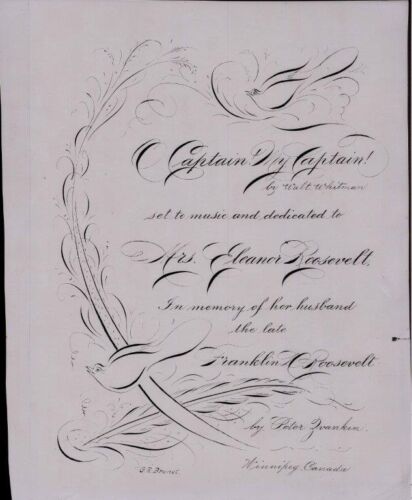 O Captain! My Captain!
by Walt Whitman
set to music and dedicated to
Mrs. Eleanor Roosevelt,
In memory of her husband
the late
Franklin D Roosevelt
by Peter Zvankin.
Winnipeg, Canada